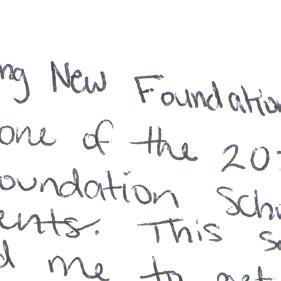 ng New Foundation
one of the 20
oundation Sch
ents. This s
d me to get